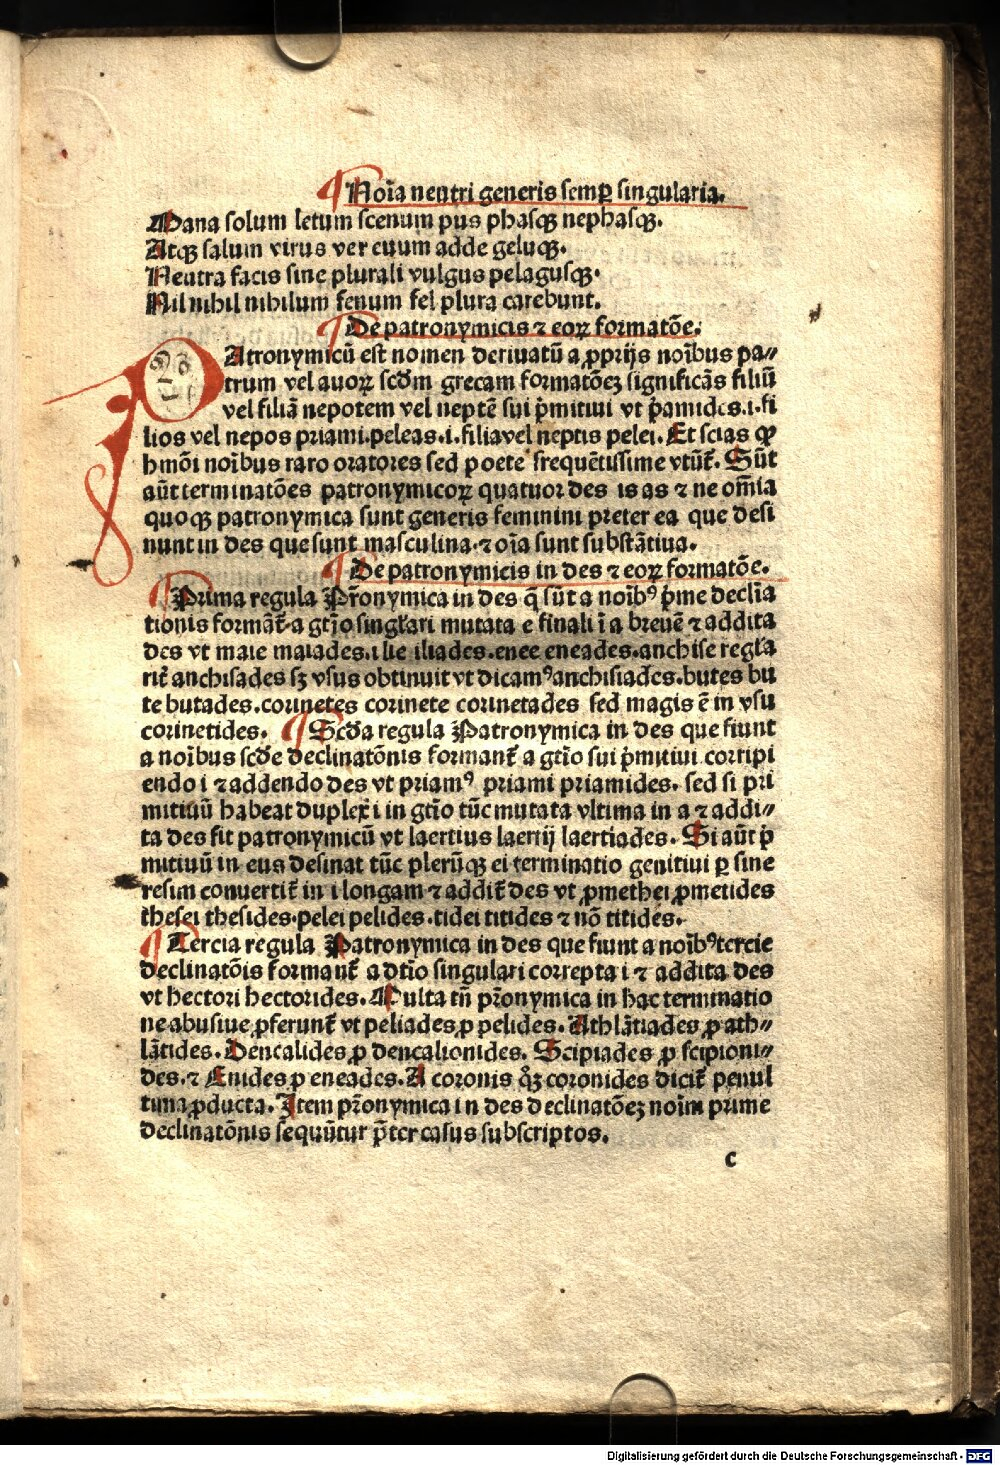 Noīa neutri generis semꝑ singularia.
Mana solum letum scenum pus phasqꝫ nephasqꝫ.
Atqꝫ salum virus ver euum adde geluqꝫ.
Neutra facis sine plurali vulgus pelagusqꝫ.
Nil nihil nihilum fenum fel plura carebunt.
De patronymicis ⁊ eoꝝ formatōe.
PAtronymicū est nomen deriuatū a ꝓprijs noībus pa⸗
trum vel auoꝝ scd̄m grecam formatōeꝫ significās filiū
vel filiā nepotem vel neptē sui p̄mitiui vt p̄amides.i.fi
lios vel nepos priami.peleas.i.filiavel neptis pelei. Et scias ꝙ
hmōi noībus raro oratores sed poete frequētissime vtūt̄. Sūt
aūt terminatōes patronymicoꝝ quatuor des is as ⁊ ne om̄ia
quoqꝫ patronymica sunt generis feminini preter ea que desi
nunt in des que sunt masculina.⁊ oīa sunt substātiua.
De patronymicis in des ⁊ eoꝝ formatōe.
Prima regula Pr̄onymica in des q̄ sūt a noībꝰ p̄me declīa
tionis formāt̄ a gt̄io singl̄ari mutata e finali ī a breuē ⁊ addita
des vt maie maiades.ilie iliades.enee eneades.anchise regl̄a
rit̄ anchisades sꝫ vsus obtinuit vt dicamꝰ anchisiades.butes bu
te butades.corinetes corinete corinetades sed magis ē in vsu
corinetides. Scd̄a regula Patronymica in des que fiunt
a noībus scd̄e declinatōnis formant̄ a gt̄io sui p̄mitiui corripi
endo i ⁊ addendo des vt priamꝰ priami priamides. sed si pri
mitiuū habeat duplex i in gt̄io tūc mutata vltima in a ⁊ addi⸗
ta des fit patronymicū vt laertius laertij laertiades. Si aūt p̄
mitiuū in eus desinat tūc plerūqꝫ ei terminatio genitiui ꝑ sine
resim conuertit̄ in i longam ⁊ addit̄ des vt ꝓmethei ꝓmetides
thesei thesides.pelei pelides.tidei titides ⁊ nō titides.
Tercia regula Patronymica in des que fiunt a noībꝰ tercie
declinatōis formant̄ a dt̄io singulari correpta i ⁊ addita des
vt hectori hectorides. Multa tn̄ pr̄onymica in hac terminatio
ne abusiue ꝓferunt̄ vt peliades ꝓ pelides. Athlātiades ꝓ ath⸗
lātides. Dencalides ꝓ dencalionides. Scipiades ꝓ scipioni⸗
des.⁊ Enides ꝓ eneades. A coronis qͦꝫ coronides dicit̄ penul
tima ꝓducta. Item pr̄onymica in des declinatōeꝫ noīm prime
declinatōnis sequūtur p̄ter casus subscriptos.
c
Digitalisierung gefördert durch die Deutsche Forschungsgemeinschaft - DFG